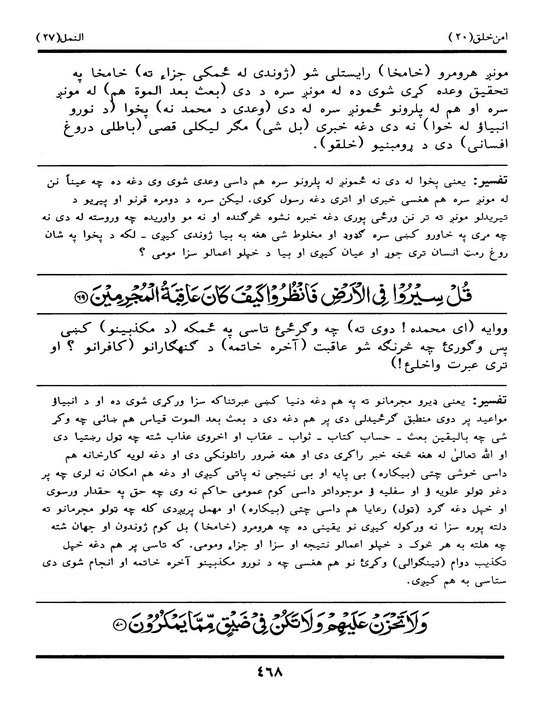 امن خلق(۲۰) النمل(۲۷)
مونږ هرومرو (خامخا) رایستلی شو (ژوندی له ځمکی جزاء ته) خامخا په
تحقیق وعده کړی شوی ده له مونږ سره د دی (بعث بعد الموة هم) له مونږ
سره او هم له پلرونو ځمونږ سره له دی (وعدی د محمد نه) پخوا (د نورو
انبیاؤ له خوا) نه دی دغه خبری (بل شی) مګر لیکلی قصی (باطلی دروغ
افسانی) دی د ړومبنیو (خلقو).
تفسیر: یعنی پخوا له دی نه ځمونږ له پلرونو سره هم داسی وعدی شوی وی دغه ده چه عیناً نن
له مونږ سره هم هغسی خبری او اتری دغه رسول کوی. لیکن سره د دومره قرنو او پیړیو د
تیریدلو مونږ ته تر نن ورځی پوری دغه خبره نشوه څرګنده او نه مو واوریده چه وروسته له دی نه
چه مړی په خاورو کښی سره ګډوډ او مخلوط شی هغه به بیا ژوندی کیږی ـ لکه د پخوا په شان
روغ رمټ انسان تری جوړ او عیان کیږی او بیا د خپلو اعمالو سزا مومی ؟
قُلْ سِيْرُوْا فِى الْاَرْضِ فَانْظُرُوْا كَيْفَ كَانَ عَاقِبَةُ الْمُجْرِمِيْنَ ﴿۶۹﴾
ووایه (ای محمده ! دوی ته) چه وګرځئ تاسی په ځمکه (د مکذبینو) کښی
پس وګورئ چه څرنګه شو عاقبت (آخره خاتمه) د ګنهګارانو (کافرانو ؟ او
تری عبرت واخلئ!)
تفسیر: یعنی ډیرو مجرمانو ته په هم دغه دنیا کښی عبرتناکه سزا ورکړی شوی ده او د انبیاؤ
مواعید پر دوی منطبق ګرځیدلی دی پر هم دغه دی د بعث بعد الموت قیاس هم ښائی چه وکړ
شی چه بالیقین بعث ـ حساب کتاب ـ ثواب ـ عقاب او اخروی عذاب شته چه ټول رښتیا دی
او الله تعالیٰ له هغه څخه خبر راکړی دی او هغه ضرور راتلونکی دی او دغه لویه کارخانه هم
داسی خوشی چټی (بیکاره) بی پایه او بی نتیجی نه پاتی کیږی او دغه هم امکان نه لری چه پر
دغو ټولو علویه ؤ او سفلیه ؤ موجوداتو داسی کوم عمومی حاکم نه وی چه حق په حقدار ورسوی
او خپل دغه ګرد (ټول) رعایا هم داسی چټی (بیکاره) او مهمل پریږدی کله چه ټولو مجرمانو ته
دلته پوره سزا نه ورکوله کیږی نو یقینی ده چه هرومرو (خامخا) بل کوم ژوندون او جهان شته
چه هلته به هر څوک د خپلو اعمالو نتیجه او سزا او جزاء ومومی. که تاسی پر هم دغه خپل
تکذیب دوام (تینګوالی) وکړئ نو هم هغسی چه د نورو مکذبینو آخره خاتمه او انجام شوی دی
ستاسی به هم کیږی.
وَلَا تَحْزَنْ عَلَيْهِمْ وَلَا تَكُنْ فِىْ ضَيْقٍ مِّمَّا يَمْكُرُوْنَ ﴿۷۰﴾
٤٦٨